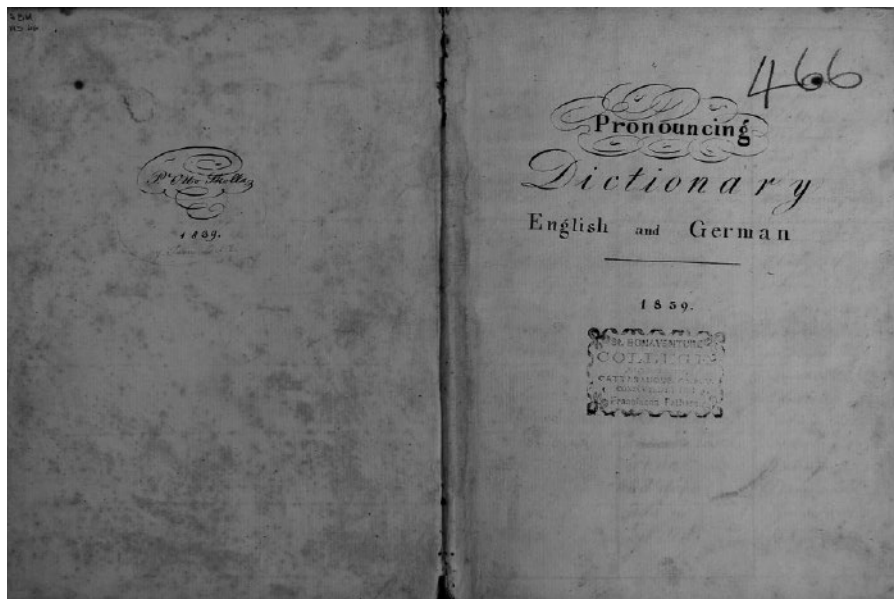 P. Otto
1839.
466
Pronouncing
Dictionary
English and German
1839.
St. BONAVENTURE
COLLEGE
CATTARAUGUS
Franciscan Fathers